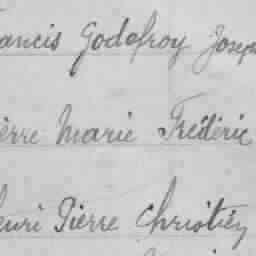 rancis Godefroy Josep
ierre Marie Frédéric
enri Pierre Christ